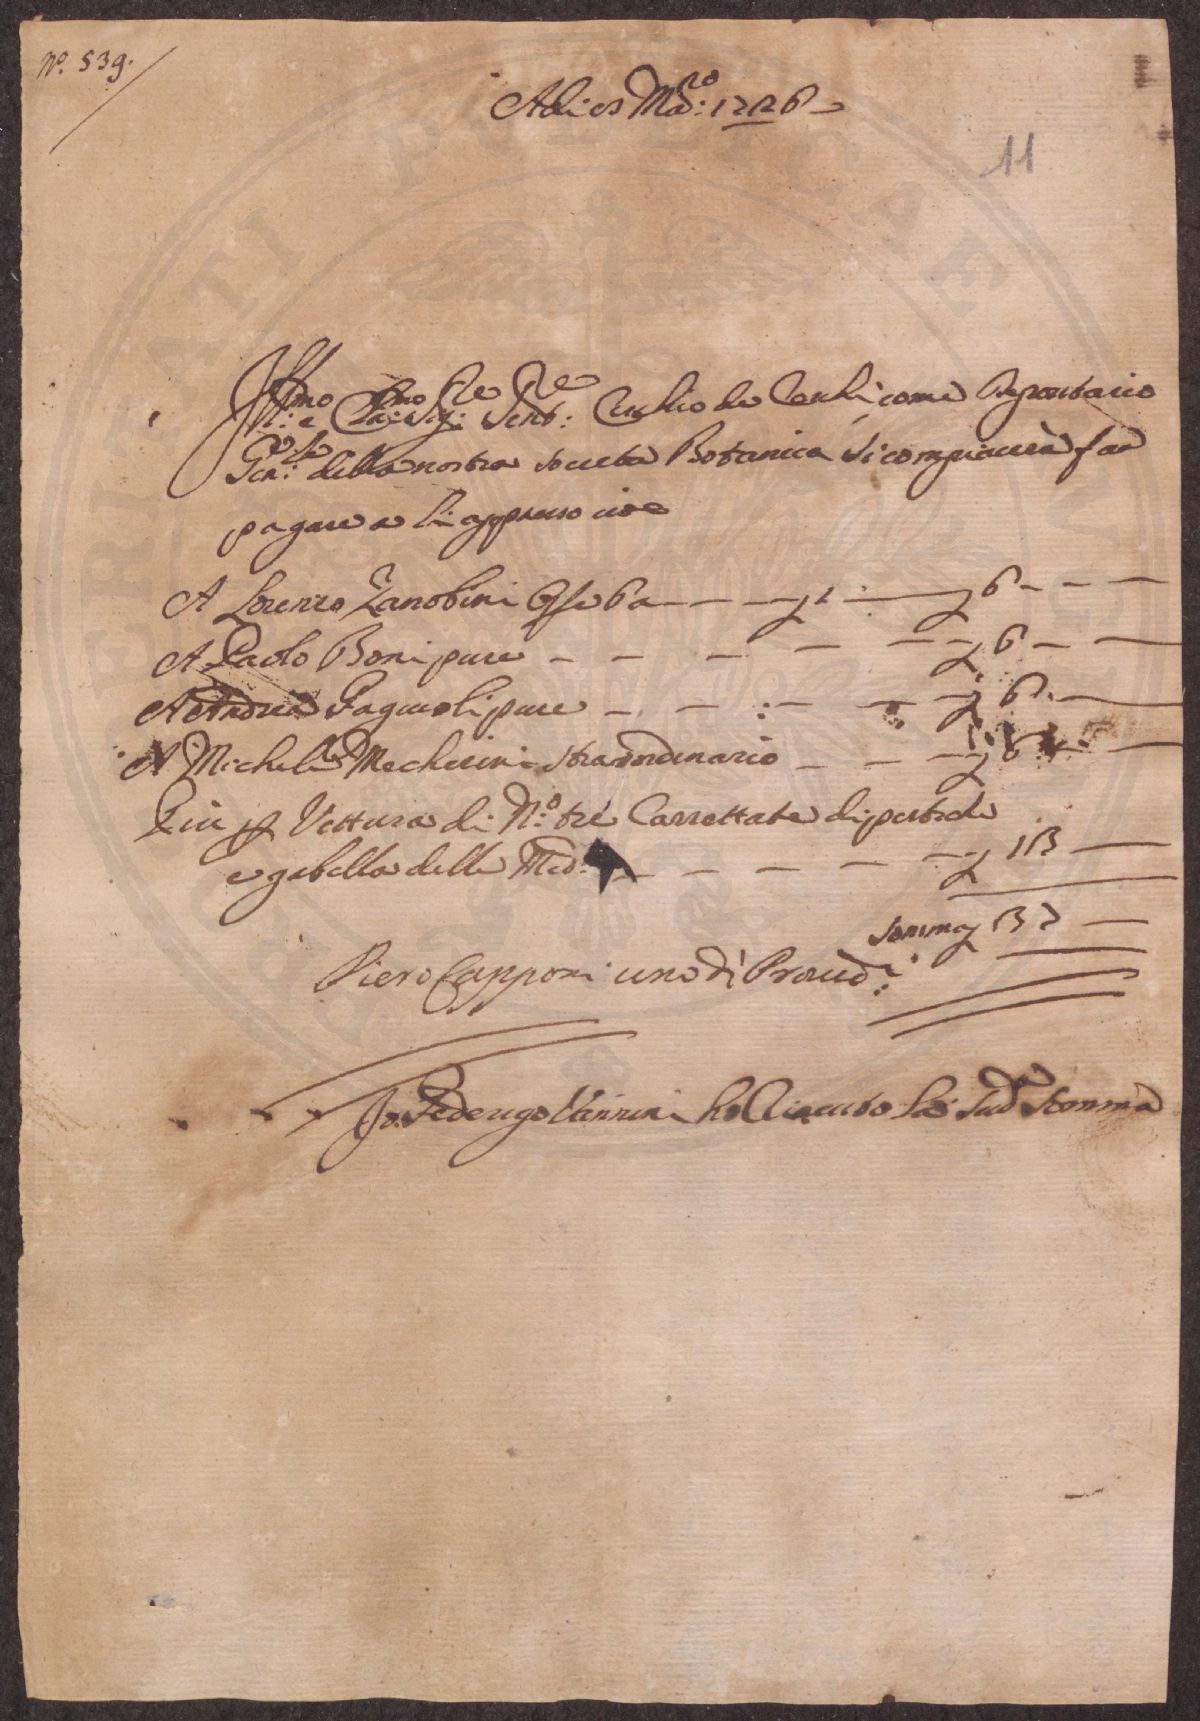 N.° 539.
Adi es Mad.ro: 1726
11
Ill.mo e Cla.mo Sig.re Sen.re: Cerchio de Cerchi come Depositario
Gen.le: della nostra società Botanica si compiacerà far
pagare a li appresso cioe
A Lorenzo Zanobini 6
A Paolo Boni pure 6
A Andrea Fagiuoli pure 6
A Michele Mecherini straordinario 6
E più p Vettura di N.° tre Carrettate di pietre
e gabella delle Med: 13
Somma 37
Piero Capponi uno di Proved:
Io Federigo Vannini ho Riceuto la Sud Somma